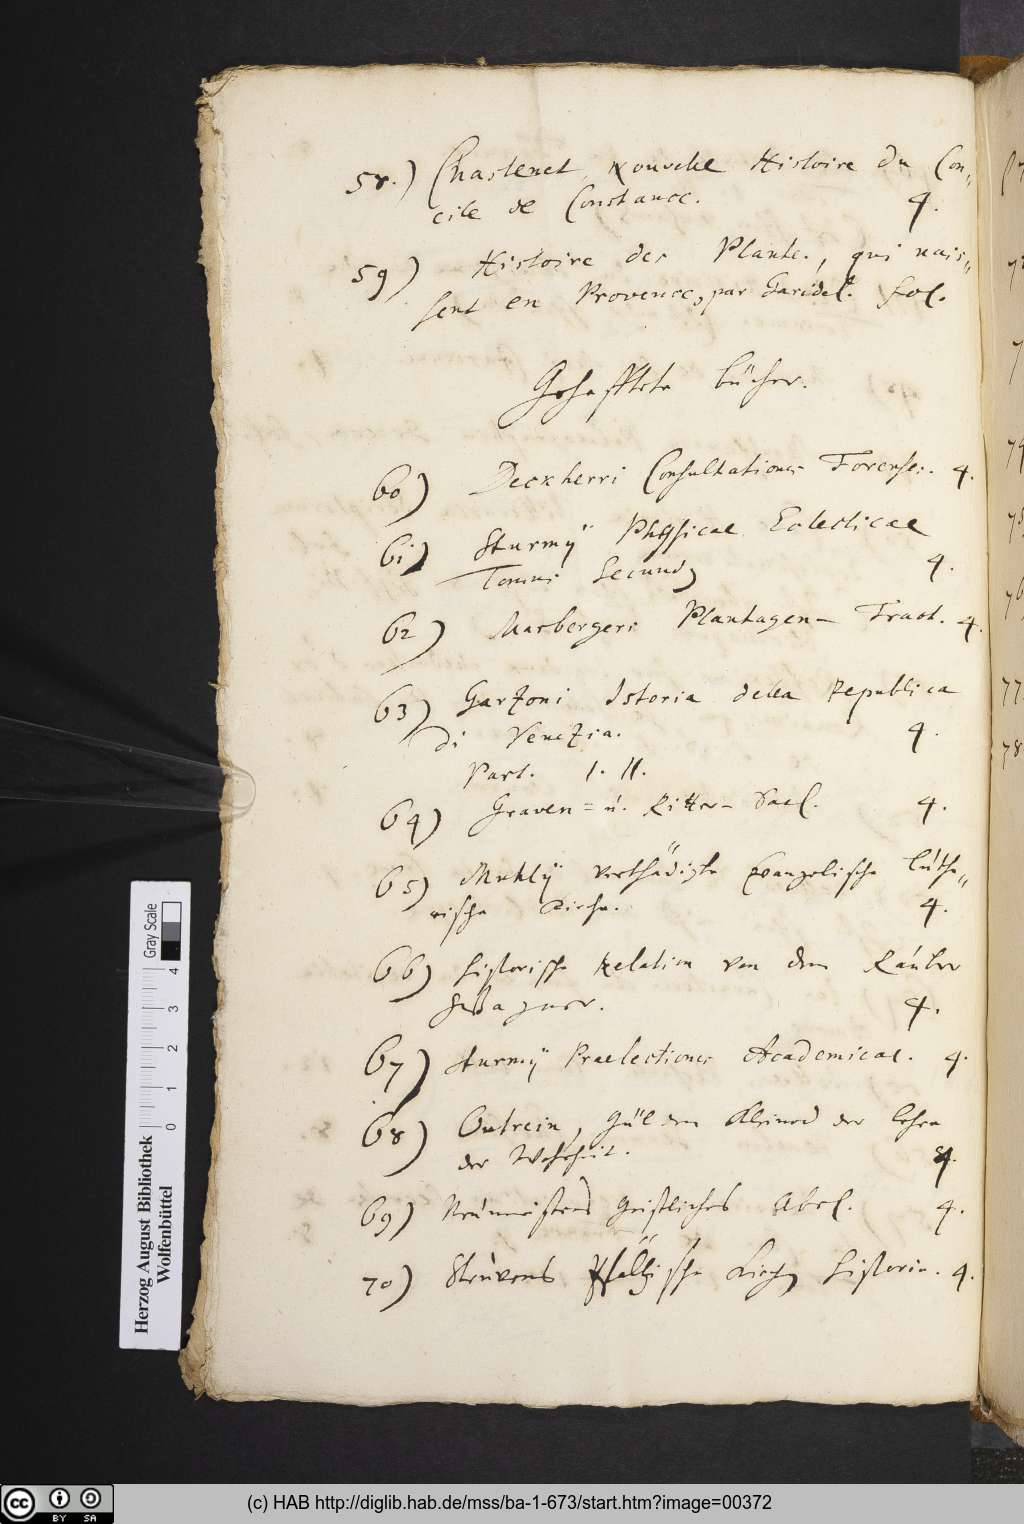 58.) Chastenet, Nouvelle Histoire du Con„
cile de Constance. 4.
59) Histoire des Plante., qui nais„
sent en Provence, par Garidel. fol.
Gehefftete bücher.
60) Deckherri Consultationes Forenses. 4.
61) Sturmÿ Physicae Eclecticae
Tomus Secund9 4.
62) Marbergers Plantagen- Tract. 4.
63) Garzoni Istoria della Republica
di Venezia. 4.
Part. I. II.
64) Graven= u. Ritter- Sael. 4.
65) Muhlÿ verthädigte Evangelische Luthe„
rische Kirche. 4.
66) Historische Relation von dem Räuber
4.
67) Sturmÿ Praelectiones Academicae. 4.
68) Outrein, Gülden Kleinod der Lehre
der Wahrheit. 4.
69) Neumeisters Geistliches Abel. 4.
70) Struvens Pfältzische Kirch Historie. 4.
Gray Scale
0 1 2 3 4
Herzog August Bibliothek
Wolfenbüttel
(c) HAB http://diglib.hab.de/mss/ba-1-673/start.htm?image=00372
cc BY SA